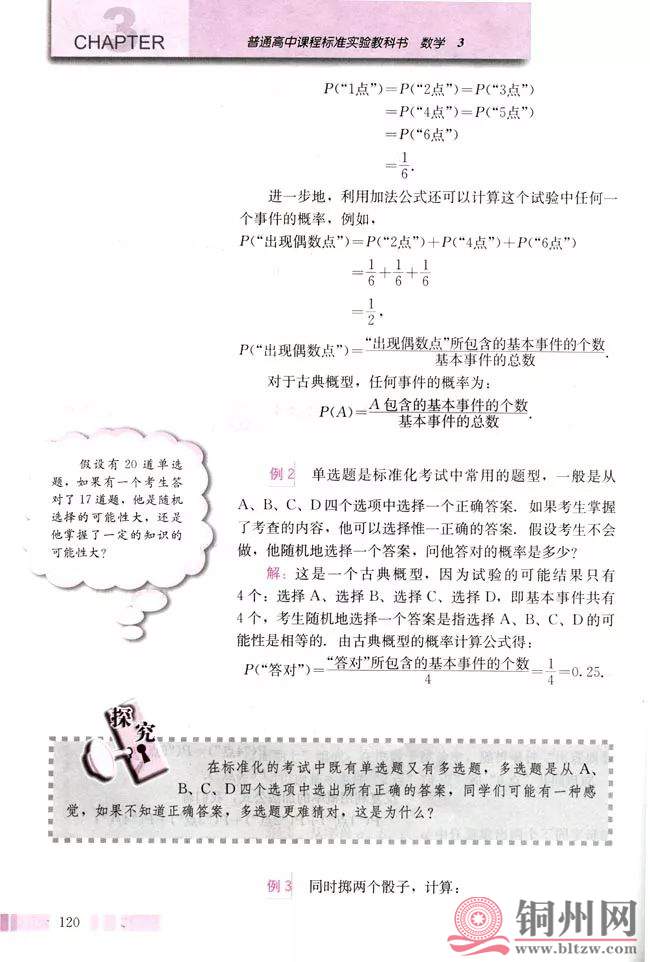 3
CHAPTER
普通高中课程标准实验教科书 数学 3
P(“1点”)=P(“2点”)=P(“3点”)
=P(“4点”)=P(“5点”)
=P(“6点”)
=1/6.
进一步地，利用加法公式还可以计算这个试验中任何一
个事件的概率，例如，
P(“出现偶数点”)=P(“2点”)+P(“4点”)+P(“6点”)
=1/6+1/6+1/6
=1/2，
P(“出现偶数点”)=“出现偶数点”所包含的基本事件的个数/基本事件的总数.
对于古典概型，任何事件的概率为：
P(A)=A包含的基本事件的个数/基本事件的总数.
假设有 20 道单选
题，如果有一个考生答
对了 17 道题，他是随机
选择的可能性大，还是
他掌握了一定的知识的
可能性大？
例 2 单选题是标准化考试中常用的题型，一般是从
A、B、C、D 四个选项中选择一个正确答案. 如果考生掌握
了考查的内容，他可以选择惟一正确的答案. 假设考生不会
做，他随机地选择一个答案，问他答对的概率是多少？
解：这是一个古典概型，因为试验的可能结果只有
4 个：选择 A、选择 B、选择 C、选择 D，即基本事件共有
4 个，考生随机地选择一个答案是指选择 A、B、C、D 的可
能性是相等的. 由古典概型的概率计算公式得：
P(“答对”)=“答对”所包含的基本事件的个数/4=1/4=0.25.
探究
在标准化的考试中既有单选题又有多选题，多选题是从 A、
B、C、D 四个选项中选出所有正确的答案，同学们可能有一种感
觉，如果不知道正确答案，多选题更难猜对，这是为什么？
例 3 同时掷两个骰子，计算：
120
铜州网
www.bltzw.com